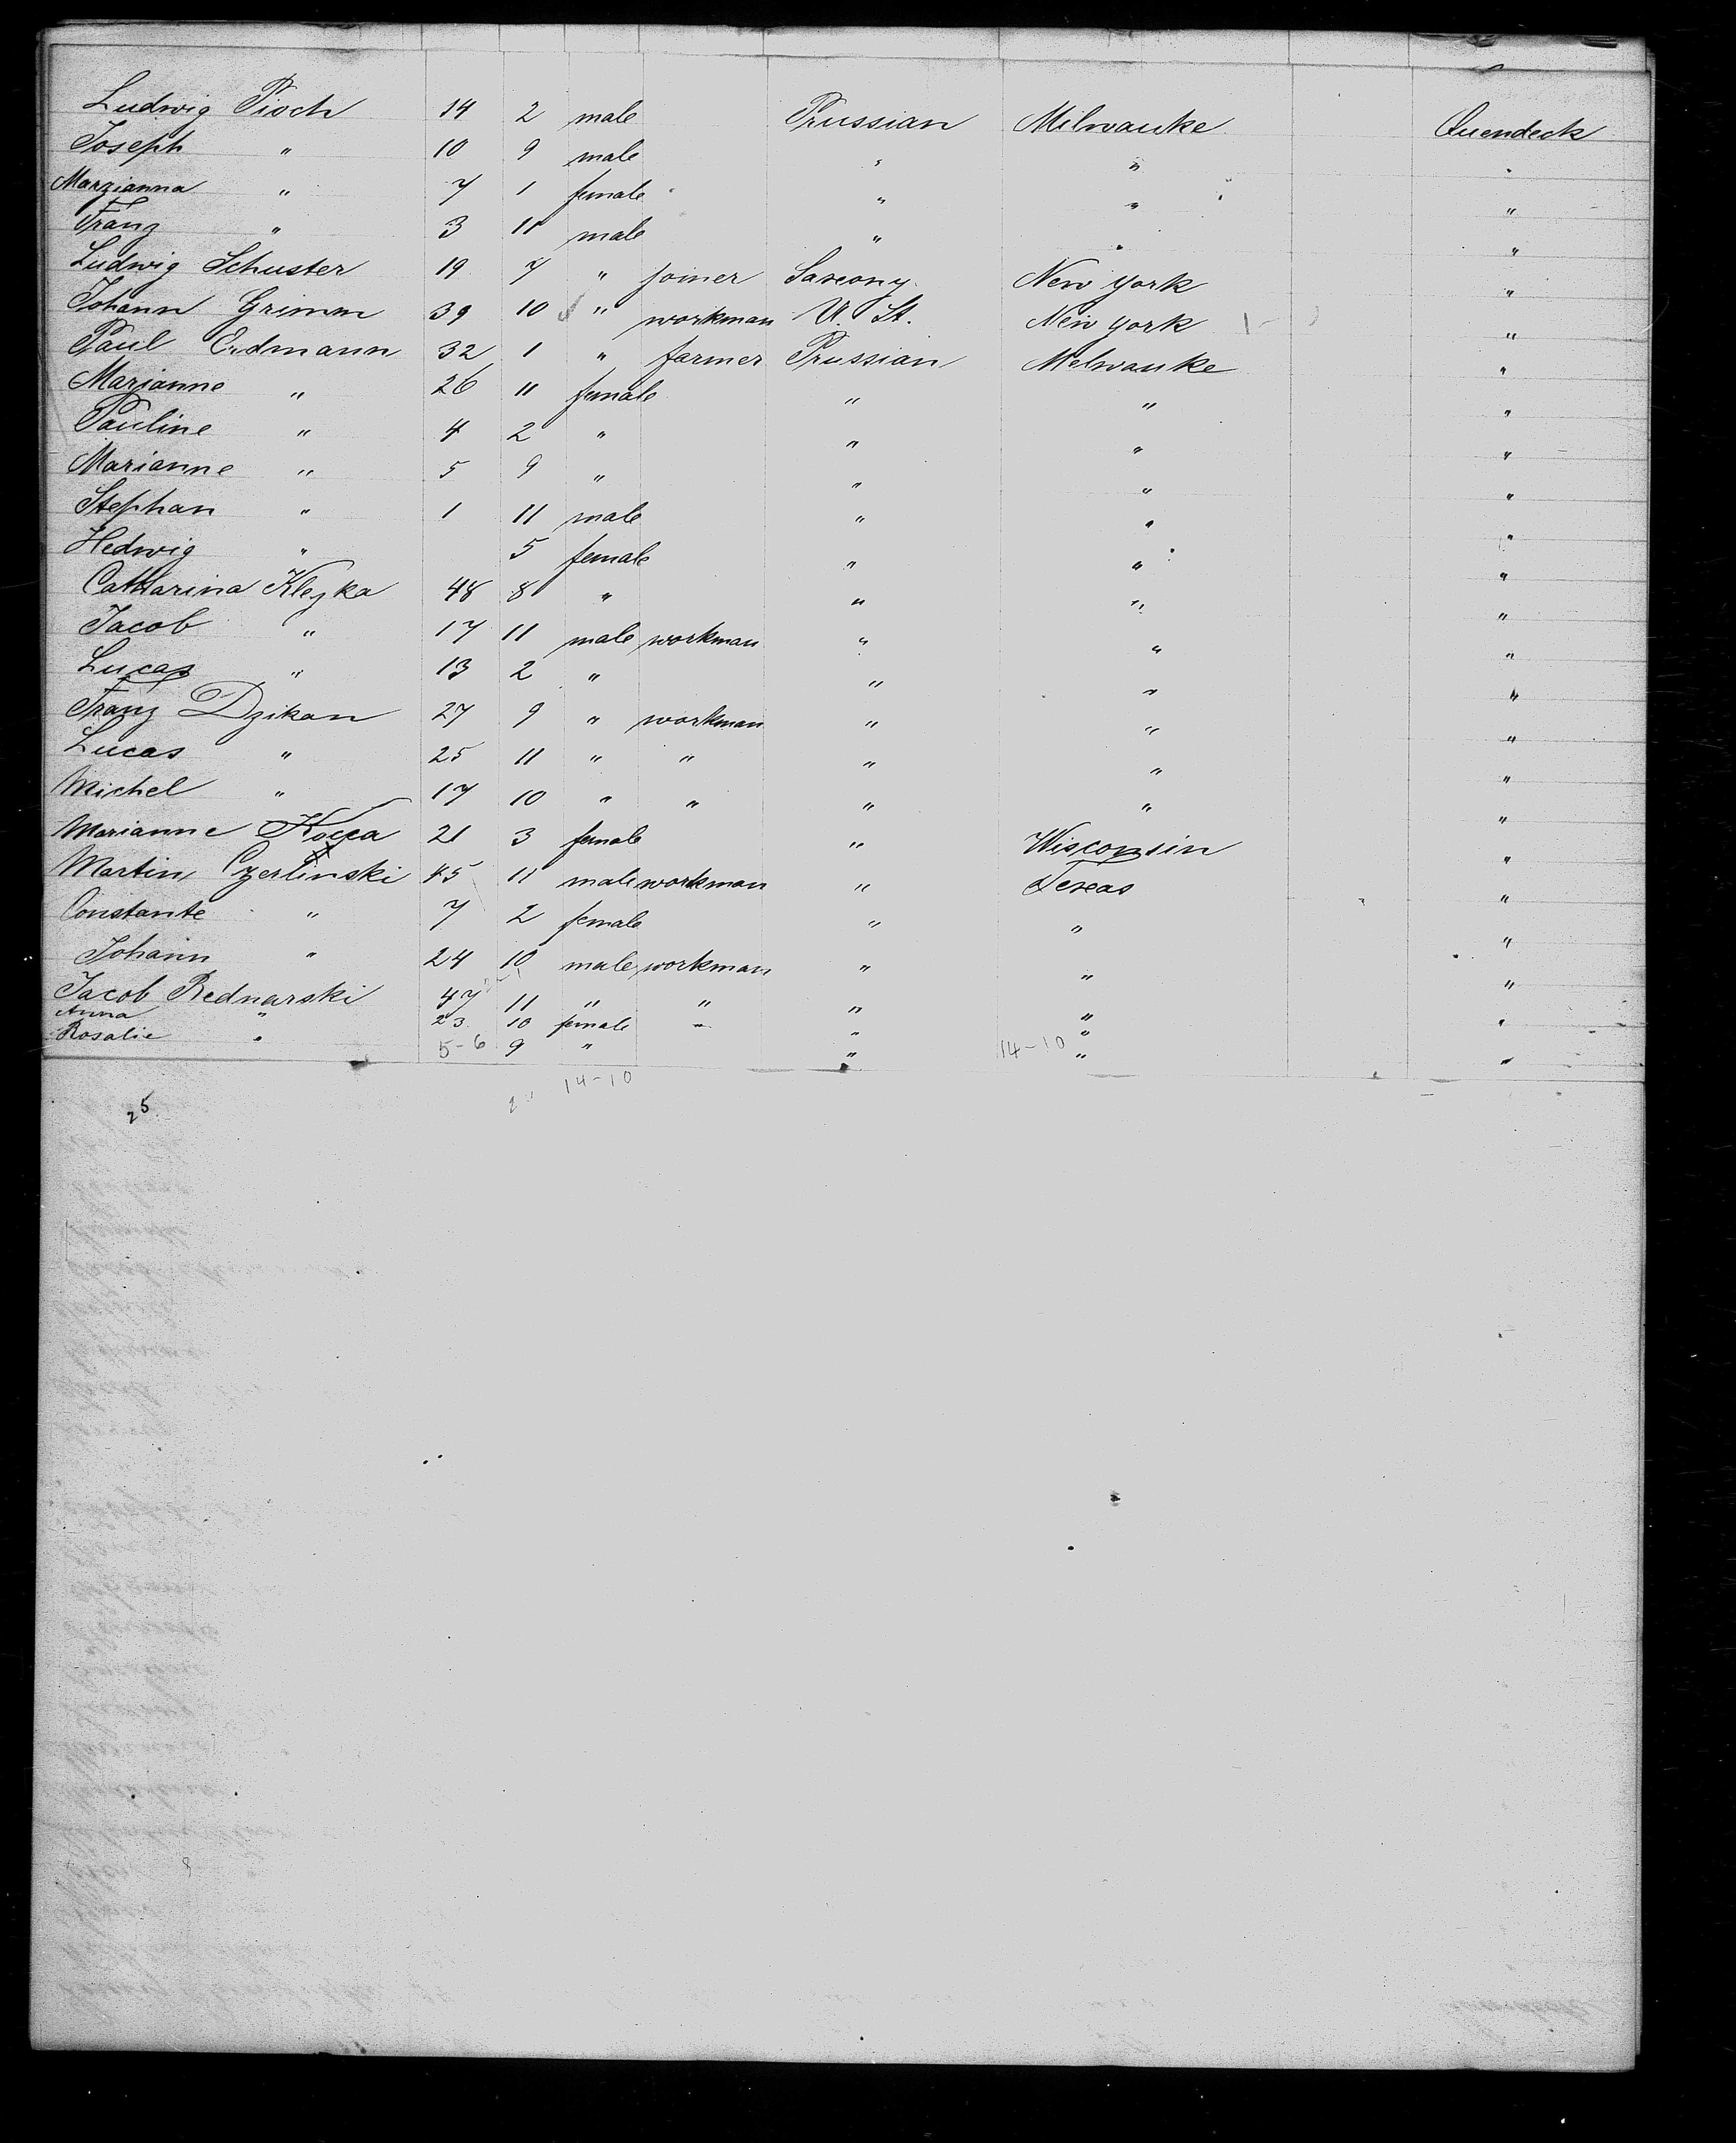 Ludwig Pioch 14 2 male Prussian Milwauke Quendeck
Joseph " 10 9 male " " "
Marzianna " 7 1 female " " "
Franz " 3 11 male " " "
Ludwig Schuster 19 7 " joiner Saxony New York "
Johann Grimm 39 10 " workman U. St. New York "
Paul Erdmann 32 1 " farmer Prussian Melwauke "
Marianne " 26 11 female " " "
Pauline " 4 2 " " " "
Marianne " 5 9 " " " "
Stephan " 1 11 male " " "
Hedwig " 5 female " " "
Catharina Klezka 48 8 " " " "
Jacob " 17 11 male workman " " "
Lucas " 13 2 " " " "
Franz Dzikan 27 9 " workman " " "
Lucas " 25 11 " " " " "
Michel " 17 10 " " " " "
Marianne 21 3 female " Wisconsin "
Martin Czerlinski 45 11 male workman " Texas "
Constante " 7 2 female " " "
Johann " 24 10 male workman " " "
Jacob Bednarski 47 11 " " " " "
Anna " 23 10 female " " " "
Rosalie " 5-6 9 " " 14-10 " "
14-10
25